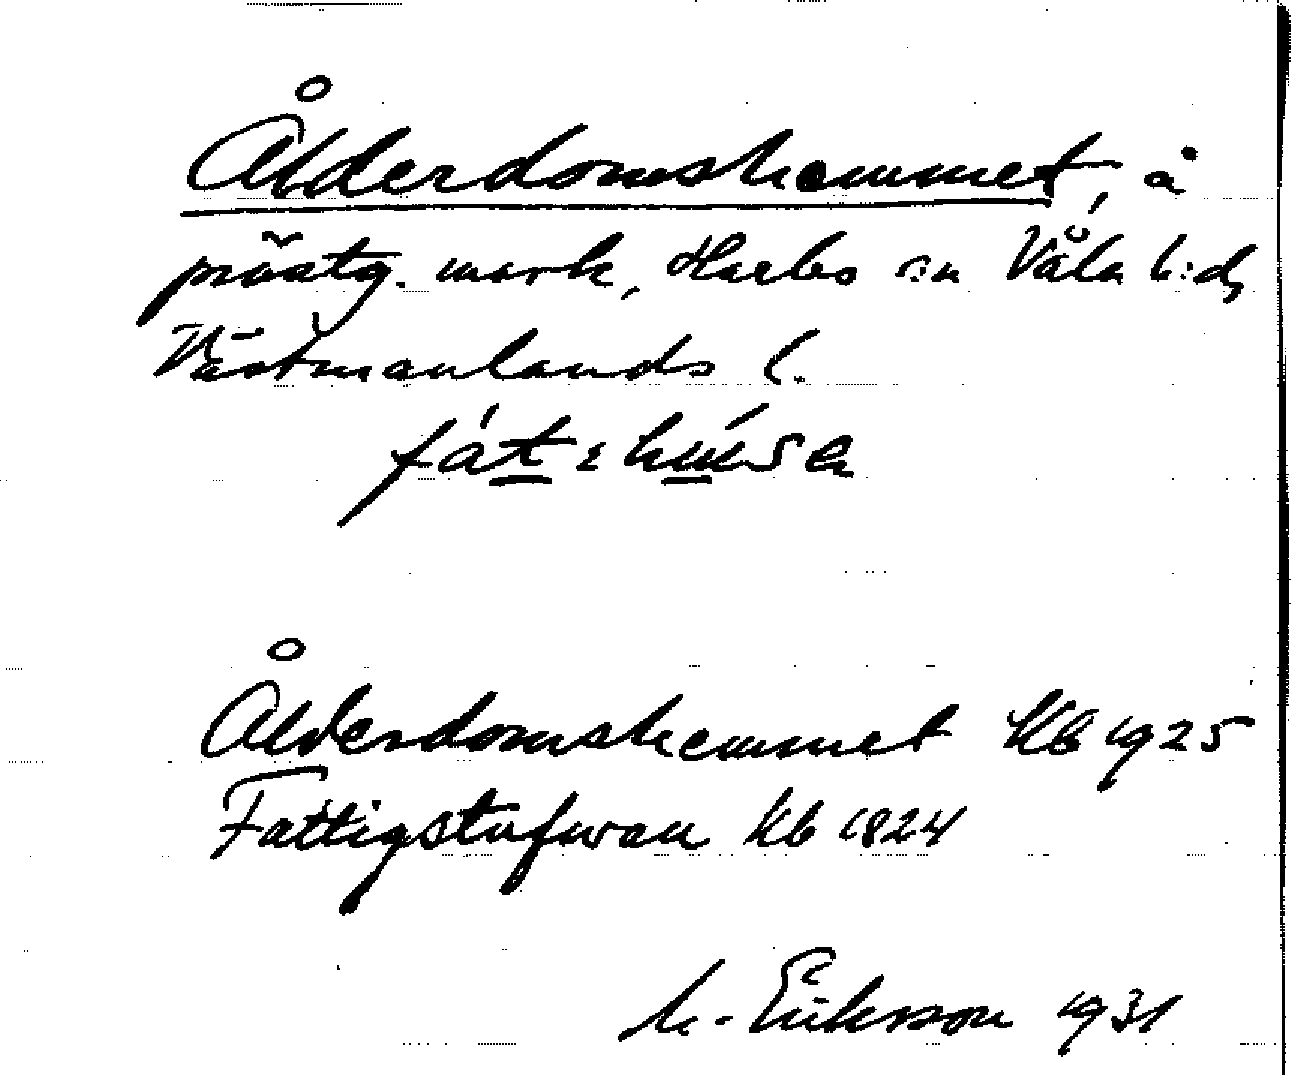 Ålderdomshemmet, å
prästg. mark, Harbo sn Våla h:d,
Västmanlands l.
fát:húsɐ
Ålderdomshemmet Kb 1925
Fattigstufwan Kb 1824
M. Eriksson 1931